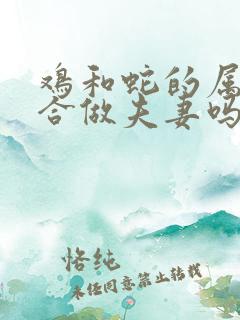 鸡和蛇的属
合做夫妻吗
恪纯
未经同意禁止转载